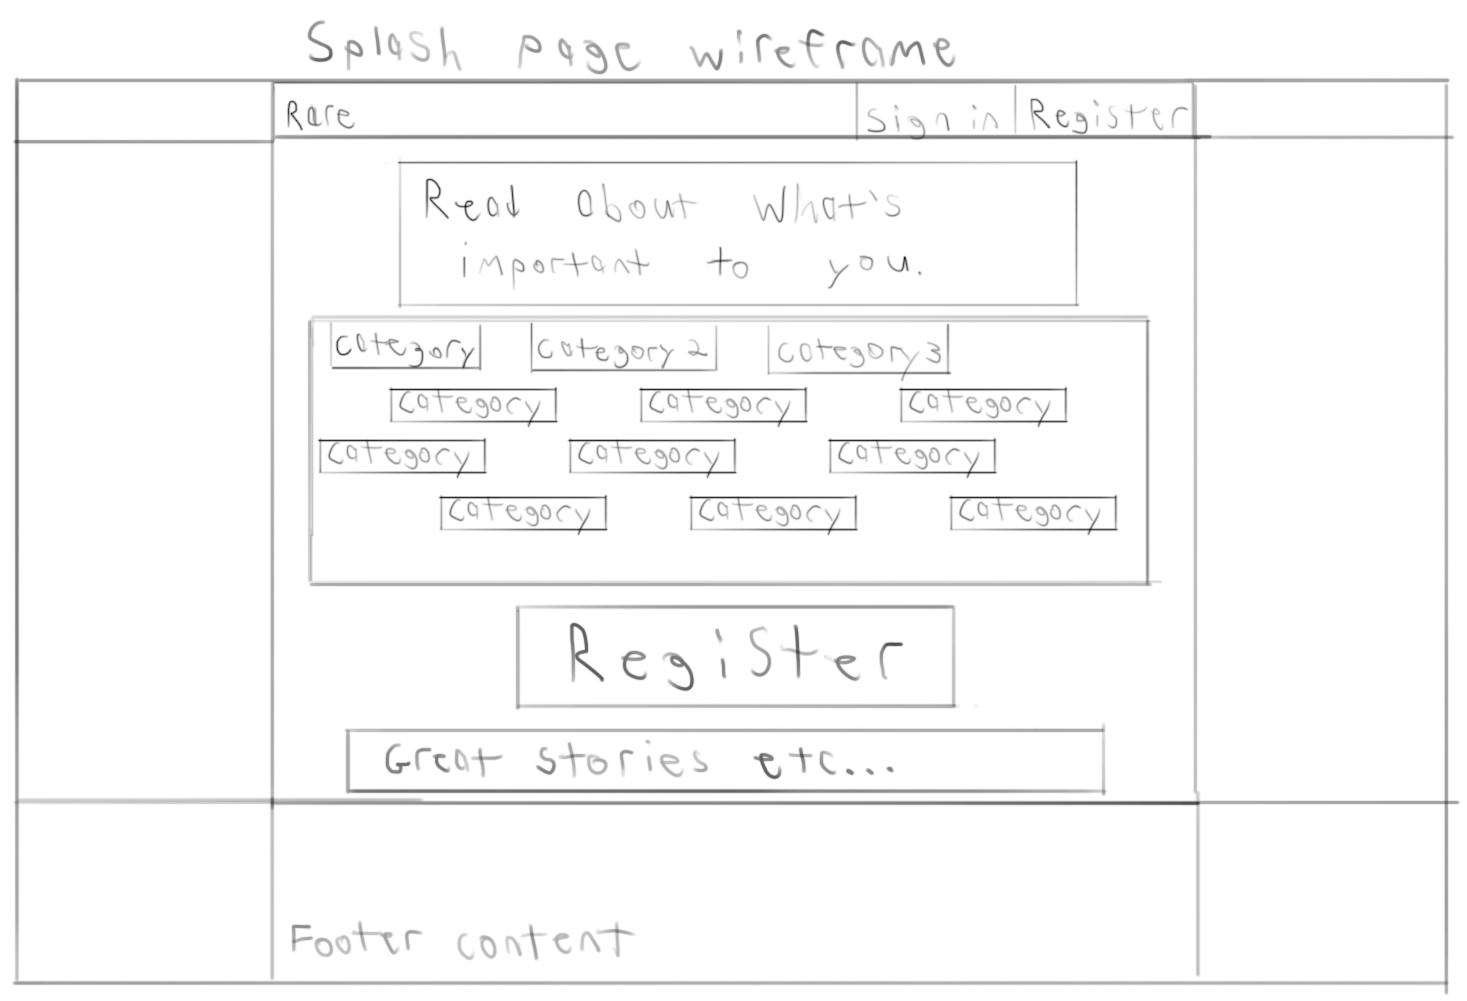 Splash page wireframe
Rare Sign in Register
Read about what's
important to you.
Category Category 2 Category 3
Category Category Category
Category Category Category
Category Category Category
Register
Great stories etc...
Footer content